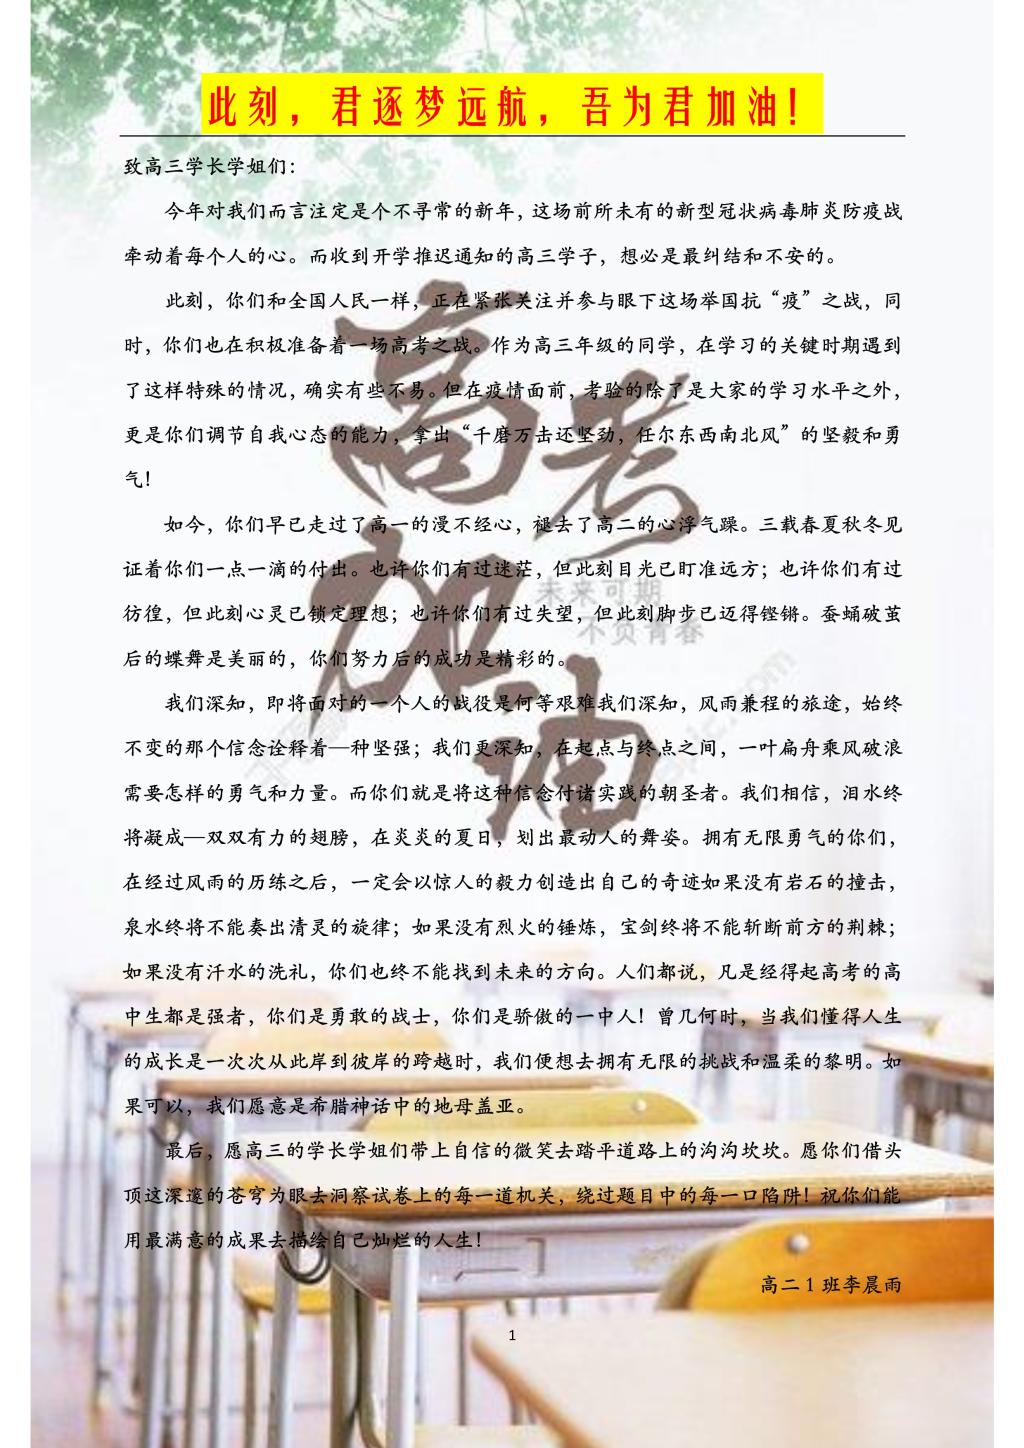 此刻，君逐梦远航，吾为君加油！
致高三学长学姐们：
今年对我们而言注定是个不寻常的新年，这场前所未有的新型冠状病毒肺炎防疫战
牵动着每个人的心。而收到开学推迟通知的高三学子，想必是最纠结和不安的。
此刻，你们和全国人民一样，正在紧张关注并参与眼下这场举国抗“疫”之战，同
时，你们也在积极准备着一场高考之战。作为高三年级的同学，在学习的关键时期遇到
了这样特殊的情况，确实有些不易。但在疫情面前，考验的除了是大家的学习水平之外，
更是你们调节自我心态的能力，拿出“千磨万击还坚劲，任尔东西南北风”的坚毅和勇
气！
如今，你们早已走过了高一的漫不经心，褪去了高二的心浮气躁。三载春夏秋冬见
证着你们一点一滴的付出。也许你们有过迷茫，但此刻目光已盯准远方；也许你们有过
彷徨，但此刻心灵已锁定理想；也许你们有过失望，但此刻脚步已迈得铿锵。蚕蛹破茧
后的蝶舞是美丽的，你们努力后的成功是精彩的。
我们深知，即将面对的一个人的战役是何等艰难我们深知，风雨兼程的旅途，始终
不变的那个信念诠释着—种坚强；我们更深知，在起点与终点之间，一叶扁舟乘风破浪
需要怎样的勇气和力量。而你们就是将这种信念付诸实践的朝圣者。我们相信，泪水终
将凝成—双双有力的翅膀，在炎炎的夏日，划出最动人的舞姿。拥有无限勇气的你们，
在经过风雨的历练之后，一定会以惊人的毅力创造出自己的奇迹如果没有岩石的撞击，
泉水终将不能奏出清灵的旋律；如果没有烈火的锤炼，宝剑终将不能斩断前方的荆棘；
如果没有汗水的洗礼，你们也终不能找到未来的方向。人们都说，凡是经得起高考的高
中生都是强者，你们是勇敢的战士，你们是骄傲的一中人！曾几何时，当我们懂得人生
的成长是一次次从此岸到彼岸的跨越时，我们便想去拥有无限的挑战和温柔的黎明。如
果可以，我们愿意是希腊神话中的地母盖亚。
最后，愿高三的学长学姐们带上自信的微笑去踏平道路上的沟沟坎坎。愿你们借头
顶这深邃的苍穹为眼去洞察试卷上的每一道机关，绕过题目中的每一口陷阱！祝你们能
用最满意的成果去描绘自己灿烂的人生！
高二 1 班李晨雨
1
高考
加油
未来可期
不负青春